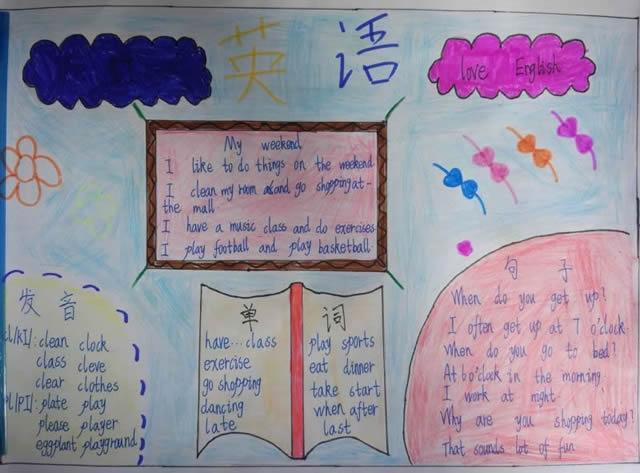 英语
love English
My weekend
I like to do things on the weekend
I clean my room and go shopping at
the mall
I have a music class and do exercises
I play football and play basketball.
发音
cl/kl/: clean clock
class cleve
clear clothes
pl/pl/: plate play
please player
eggplant playground
单词
have...class
exercise
go shopping
dancing
late
play sports
eat dinner
take start
when after
last
句子
When do you get up?
I often get up at 7 o'clock.
When do you go to bed?
At 6 o'clock in the morning
I work at night
Why are you shopping today?
That sounds lot of fun